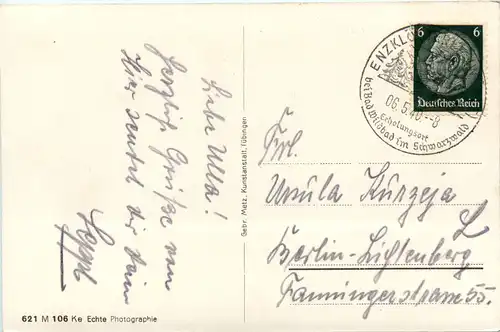 Liebe Ulla!
Herzliche Grüße von
Hier sendet dir dein
Seppl
621 M 106 Ke Echte Photographie
Gebr. Metz, Kunstanstalt, Tübingen
6 6
Deutsches Reich
ENZKLÖ
06.5.40.-8
Erholungsort
bei Bad Wildbad im Schwarzwald
Frl.
Ursula Kurzeja
Berlin-Lichtenberg
Fanningerstrasse 55.